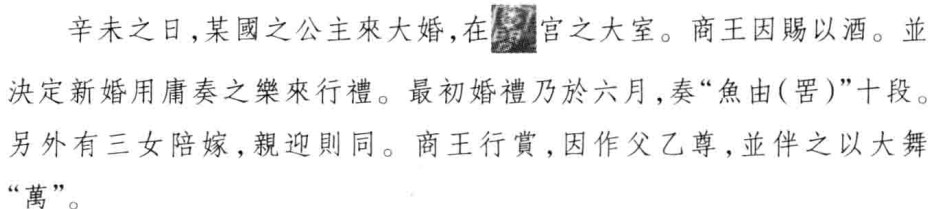 辛未之日,某國之公主來大婚,在宫之大室。商王因賜以酒。並
決定新婚用庸奏之樂來行禮。最初婚禮乃於六月,奏“魚由(罟)”十段。
另外有三女陪嫁,親迎則同。商王行賞,因作父乙尊,並伴之以大舞
“萬”。